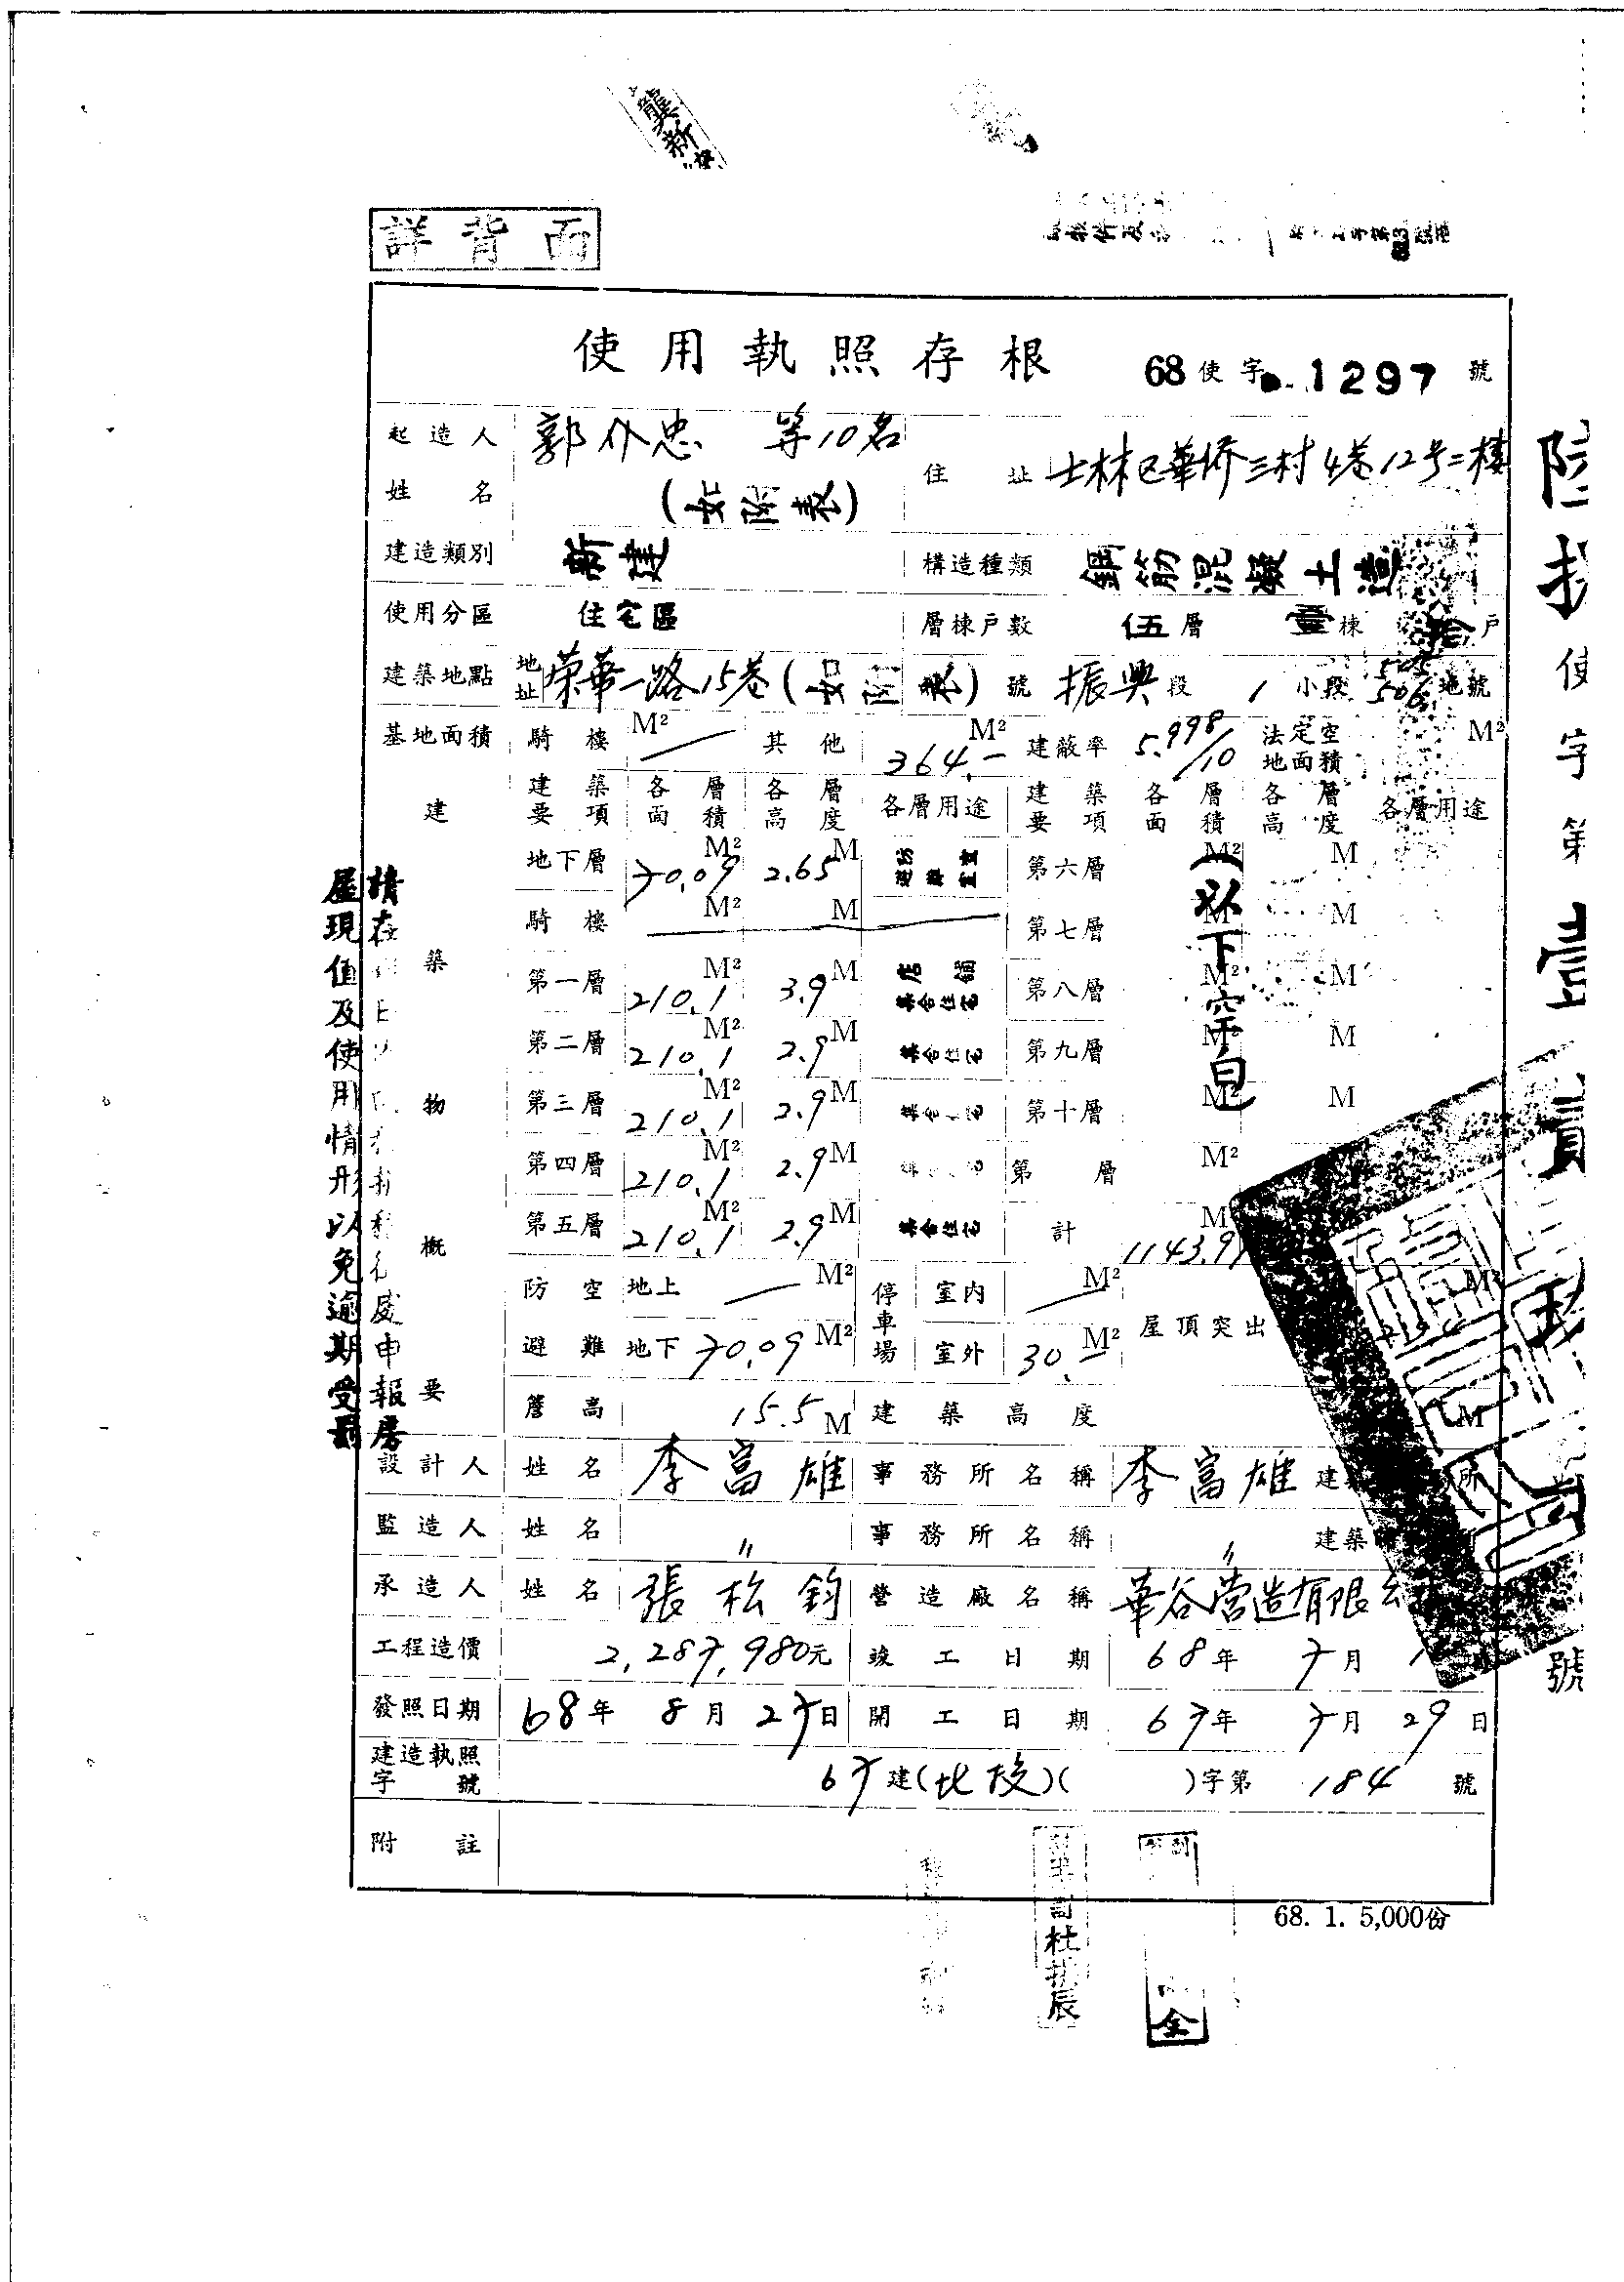 龔新
詳背面
使用執照存根 68使字 1297 號
起造人姓名 郭介忠 等10名 (如附表)
住址 士林区華僑三村4巷12号二樓
建造類別 新建 構造種類 鋼筋混凝土造
使用分區 住宅區 層棟戶數 伍層 壹棟 拾戶
建築地點 地址 榮華一路15巷(如附表)號 振興段 1小段 505 506地號
基地面積 騎樓 M² 其他 364.- M² 建蔽率 5.998/10 法定空地面積 M²
建築物概要
建築要項 各層面積 各層高度 各層用途 建築要項 各層面積 各層高度 各層用途
地下層 70.09 M² 2.65 M 防空避難室 第六層 M² M
騎樓 M² M 第七層 M² M
第一層 210.1 M² 3.9 M 店舖 集合住宅 第八層 M² M
第二層 210.1 M² 2.9 M 集合住宅 第九層 M² M
第三層 210.1 M² 2.9 M 第十層 M² M
第四層 210.1 M² 2.9 M 第 層 M²
第五層 210.1 M² 2.9 M 集合住宅 計
(以下空白)
防空避難 地上 M² 停車場 室內 M² 屋頂突出 M²
地下 70.09 M² 室外 30.- M²
簷高 15.5 M 建築高度 M
設計人 姓名 李富雄 事務所名稱 李富雄 建 所
監造人 姓名 〃 事務所名稱 〃 建築
承造人 姓名 張松鈞 營造廠名稱 華谷营造有限
工程造價 2,287,980元 竣工日期 68年 7月
發照日期 68年 8月 27日 開工日期 67年 7月 29日
建造執照字號 67建(北投)( )字第 184 號
附註
68. 1. 5,000份
屋現值及使用情形以免逾期受罰
使字第壹
號
杜
辰
全